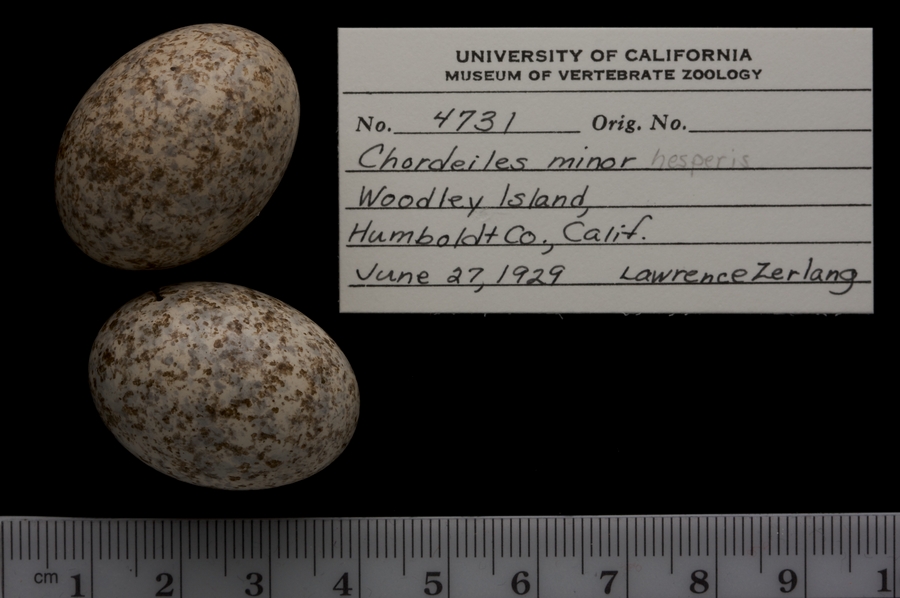 UNIVERSITY OF CALIFORNIA
MUSEUM OF VERTEBRATE ZOOLOGY
No. 4731 Orig. No.
Chordeiles minor hesperis
Woodley Island,
Humboldt Co., Calif.
June 27, 1929 Lawrence Zerlang
cm 1 2 3 4 5 6 7 8 9 1